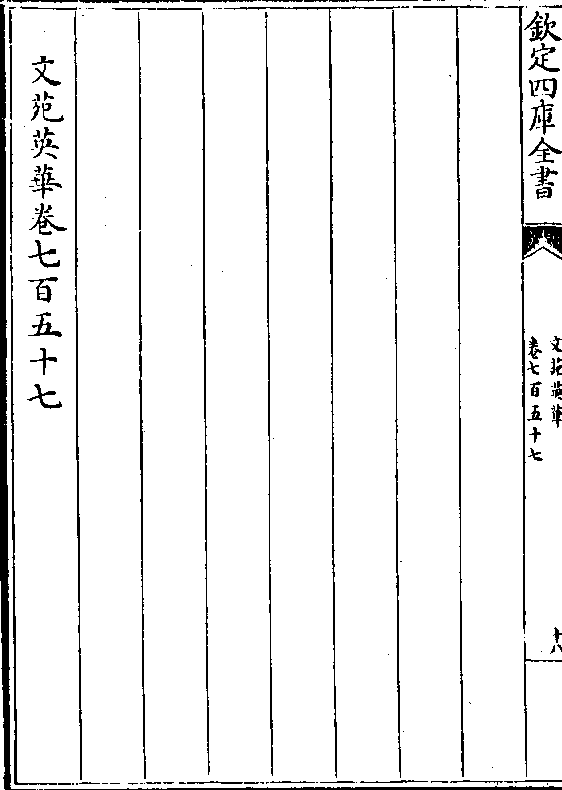 欽定四庫全書
文苑英華
卷七百五十七
十八
文苑英華卷七百五十七